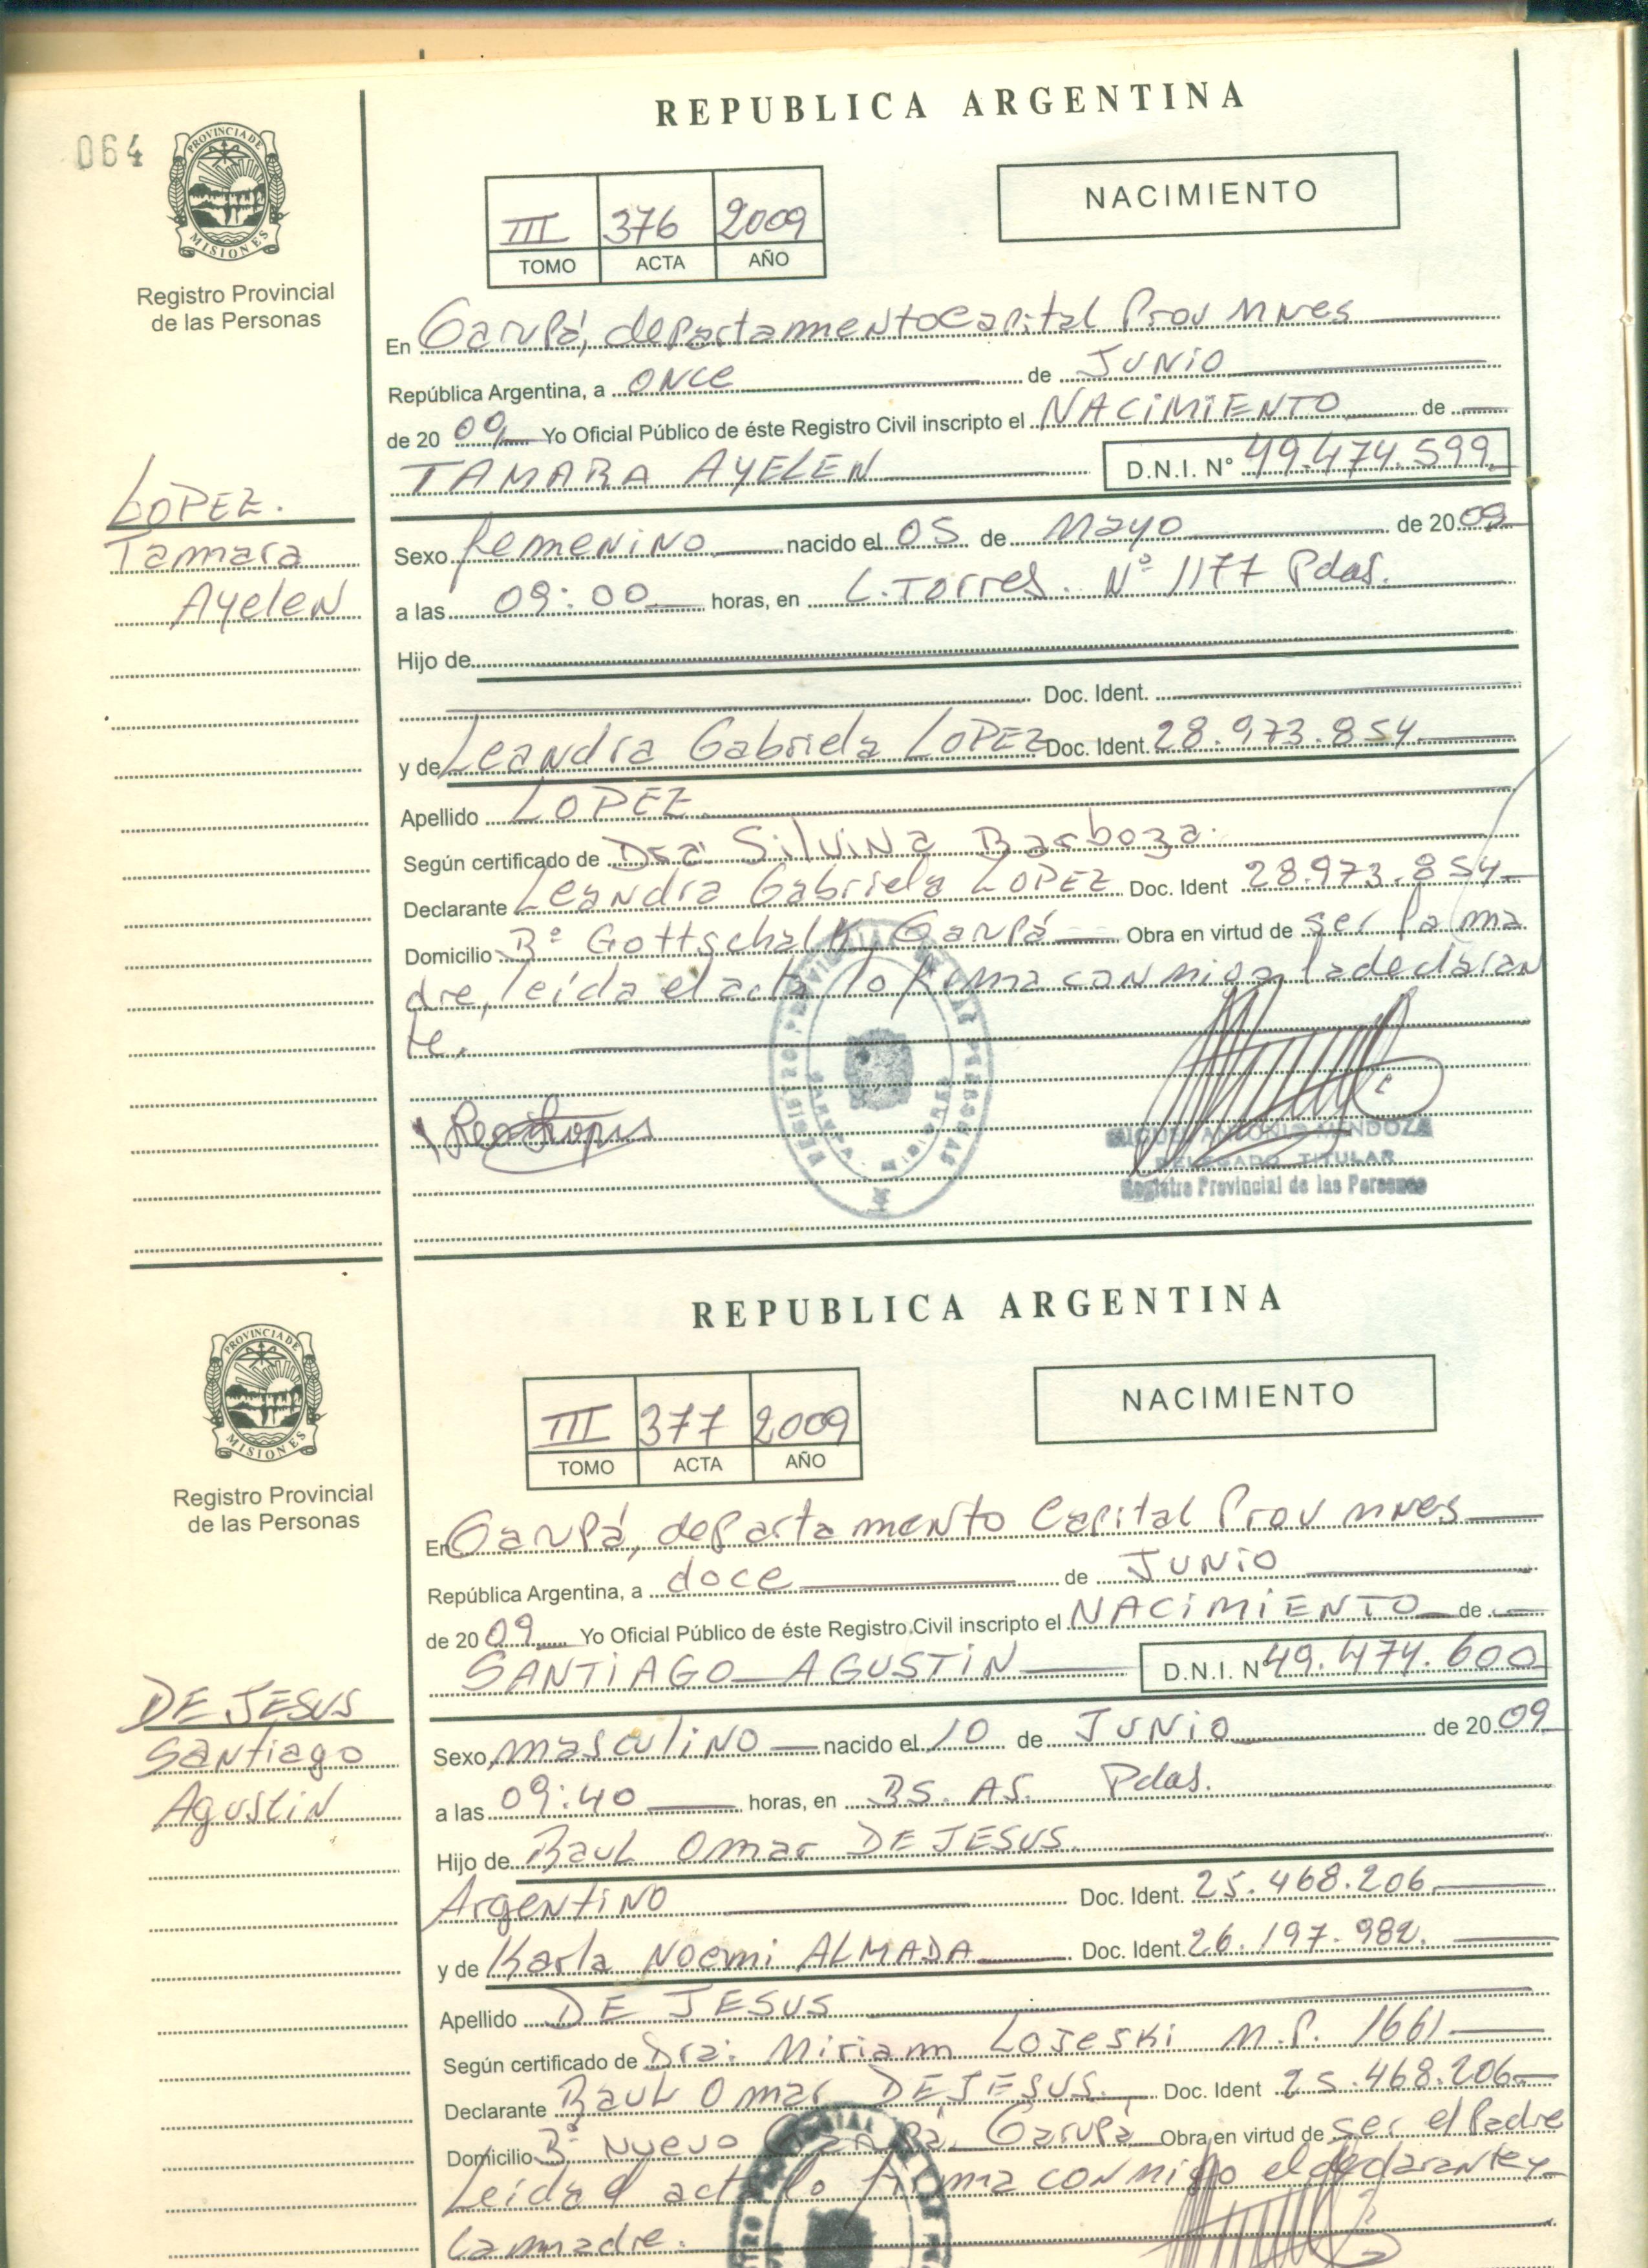 064
PROVINCIA DE
MISIONES
Registro Provincial
de las Personas
REPUBLICA ARGENTINA
III 376 2009
TOMO ACTA AÑO
NACIMIENTO
En Garupá, departamento Capital Prov Mnes
República Argentina, a once de JUNIO
de 20 09 Yo Oficial Público de éste Registro Civil inscripto el NACIMIENTO de
TAMARA AYELEN D.N.I. Nº 49.474.599
LOPEZ.
Tamara
Ayelen
Sexo femenino nacido el 05 de Mayo de 20 09
a las 09:00 horas, en L. Torres. Nº 1177 Pdas.
Hijo de
Doc. Ident.
y de Leandra Gabriela LOPEZ Doc. Ident. 28.973.854
Apellido LOPEZ
Según certificado de Dra. Silvina Barboza.
Declarante Leandra Gabriela LOPEZ Doc. Ident 28.973.854
Domicilio Bº Gottschalk, Garupá Obra en virtud de ser la ma
dre, leida el acta lo firma conmigo la declaran
te.
MIGUEL ANTONIO MENDOZA
DELEGADO TITULAR
Registro Provincial de las Personas
PROVINCIA DE
MISIONES
Registro Provincial
de las Personas
REPUBLICA ARGENTINA
III 377 2009
TOMO ACTA AÑO
NACIMIENTO
En Garupá, departamento Capital Prov Mnes
República Argentina, a doce de JUNIO
de 20 09 Yo Oficial Público de éste Registro Civil inscripto el NACIMIENTO de
SANTIAGO AGUSTIN D.N.I. N 49.474.600
DE JESUS
Santiago
Agustin
Sexo masculino nacido el 10 de JUNIO de 20 09
a las 09:40 horas, en BS. AS. Pdas.
Hijo de Raul Omar DE JESUS.
Argentino Doc. Ident. 25.468.206
y de Karla Noemi ALMADA Doc. Ident. 26.197.982.
Apellido DE JESUS
Según certificado de Dra: Miriam Lojeski M.P. 1661
Declarante Raul Omar DE JESUS. Doc. Ident 25.468.206
Domicilio Bº Nuevo Garupá Garupá Obra en virtud de ser el Padre
Leida el acta lo firma conmigo el declarante y
la madre.